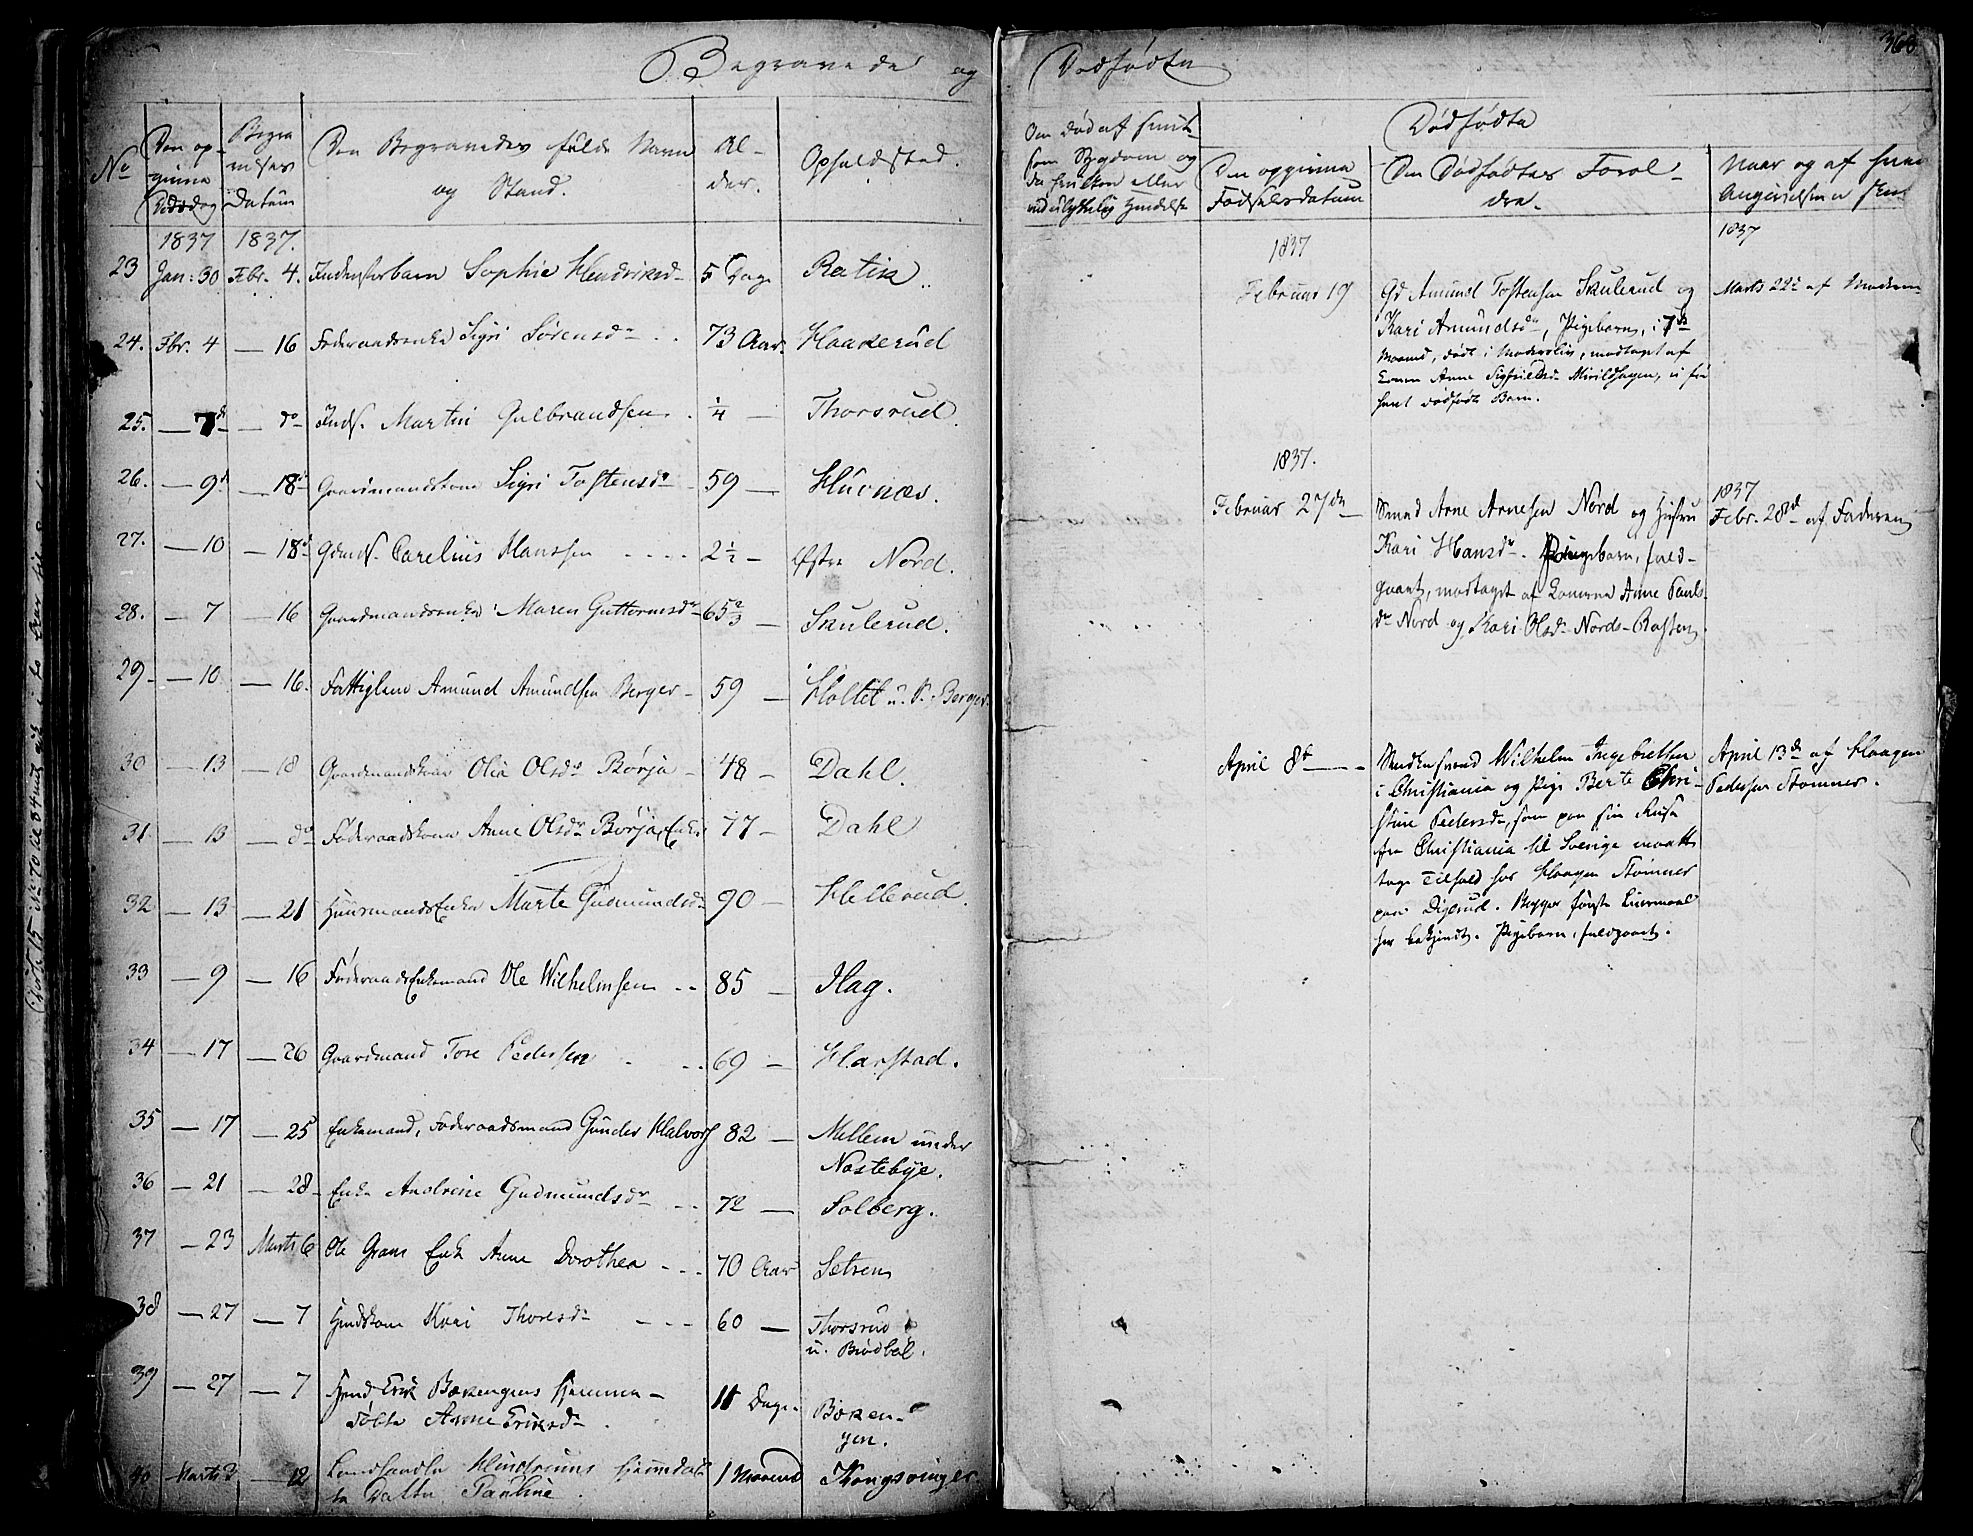 Begravede og
No
Den op-
givne
Dødsdag
Begra
velses
Datum
Den Begravedes fulde Navn
og Stand.
Al-
der.
Opholdssted.
1837 1837.
23 Jan: 30 Febr. 4. Inderstbarn Sophie Hendriksd 5 Dage Ratik
24. Fbr. 4 — 16 Føderaadsenke Sigri Sørensdr 73 Aar. Haakerud
25. — 7d — do Inds. Martin Gulbrandsen ¼ — Thorsrud
26. — 9d — 18d Gaardmandskone Sigri Tostensdr 59 — Huvnæs.
27. — 10 — 18d Gdmds. Carelius Hanssen 2½ — Østre Nord.
28. — 7 — 16 Gaardmandsenke Maren Guttormsdr 65⅔ — Skulerud.
29. — 10 — 16. Fattiglem Amund Amundsen Berger 59 — Holtet u. Berger.
30 — 13 — 18 Gaardmandskone Olia Olsdr Børja 48 — Dahl.
31 — 13 — do Føderaadskone Anne Olsdr Børja, Enke 77 — Dahl
32 — 13 — 21 HuusmandsEnke Marte Gudmundsdr 90 — Hellerud
33 — 9 — 16 FøderaadsEnkemand Ole Wilhelmsen 85 — Hag.
34 — 17 — 26 Gaardmand Tore Pedersen 69 — Harstad.
35 — 17 — 25 Enkemand, Føderaadsmand Gunder Halvors 82 — Mellem under
Nastebye.
36 — 21 — 28 Enke Andrine Gudmundsdr 72 — Solberg.
37 — 23 Marts 6 Ole Grans Enke Anne Dorothea 70 Aar Setren
38 — 27 — 7 Kari Thoresdr 60 — Thorsrud
u. Brødbøl.
39 — 27 — 7 Erik Bækengens hjemme-
døbte Anne Eriksdr 11 Dage. Bæken-
gen.
40 Marts 2 — 12 Landhandler hjemmedøb-
te Datter Pauline. 1 Maaned Kongsvinger
Dødfødte
368
Om død af smit-
som Sygdom og
da hvilken eller
ved ulykkelig Hendelse
Dødfødte
Den opgivne
Fødselsdatum
Den Dødfødtes Foræl-
dre.
Naar og af hvem
Angivelsen er skeet
1837
1837
Februar 19
Gd Amund Tostensen Skulerud og
Kari Amundsdr, Pigebarn, i 7de
Maaned, dødt i Moderliv, modtaget af
Konen Anne Sigfridsdr
dødfødt Barn.
Marts 22d af Moderen
1837.
Februar 27de
Smed Arne Arnesen Nord og Hustru
Kari Hansdr. Pigebarn, fuld-
gaaet, modtaget af Konerne Anne Pauls-
dr Nord og Kari Olsdr Nords-Rasten
1837
Febr. 28d af Faderen
April 8d
Wilhelm Ingebretsen
i Christiania og Pige Berte Chri-
stine Pedersdr, som paa sin Reise
fra Christiania til Sverige maatte
tage Tilhold hos Haagen Stømner
paa Digerud. Begges første Leiermaal
her bekjendt. Pigebarn, fuldgaaet.
April 13de af Haagen
Pedersen Stømner.